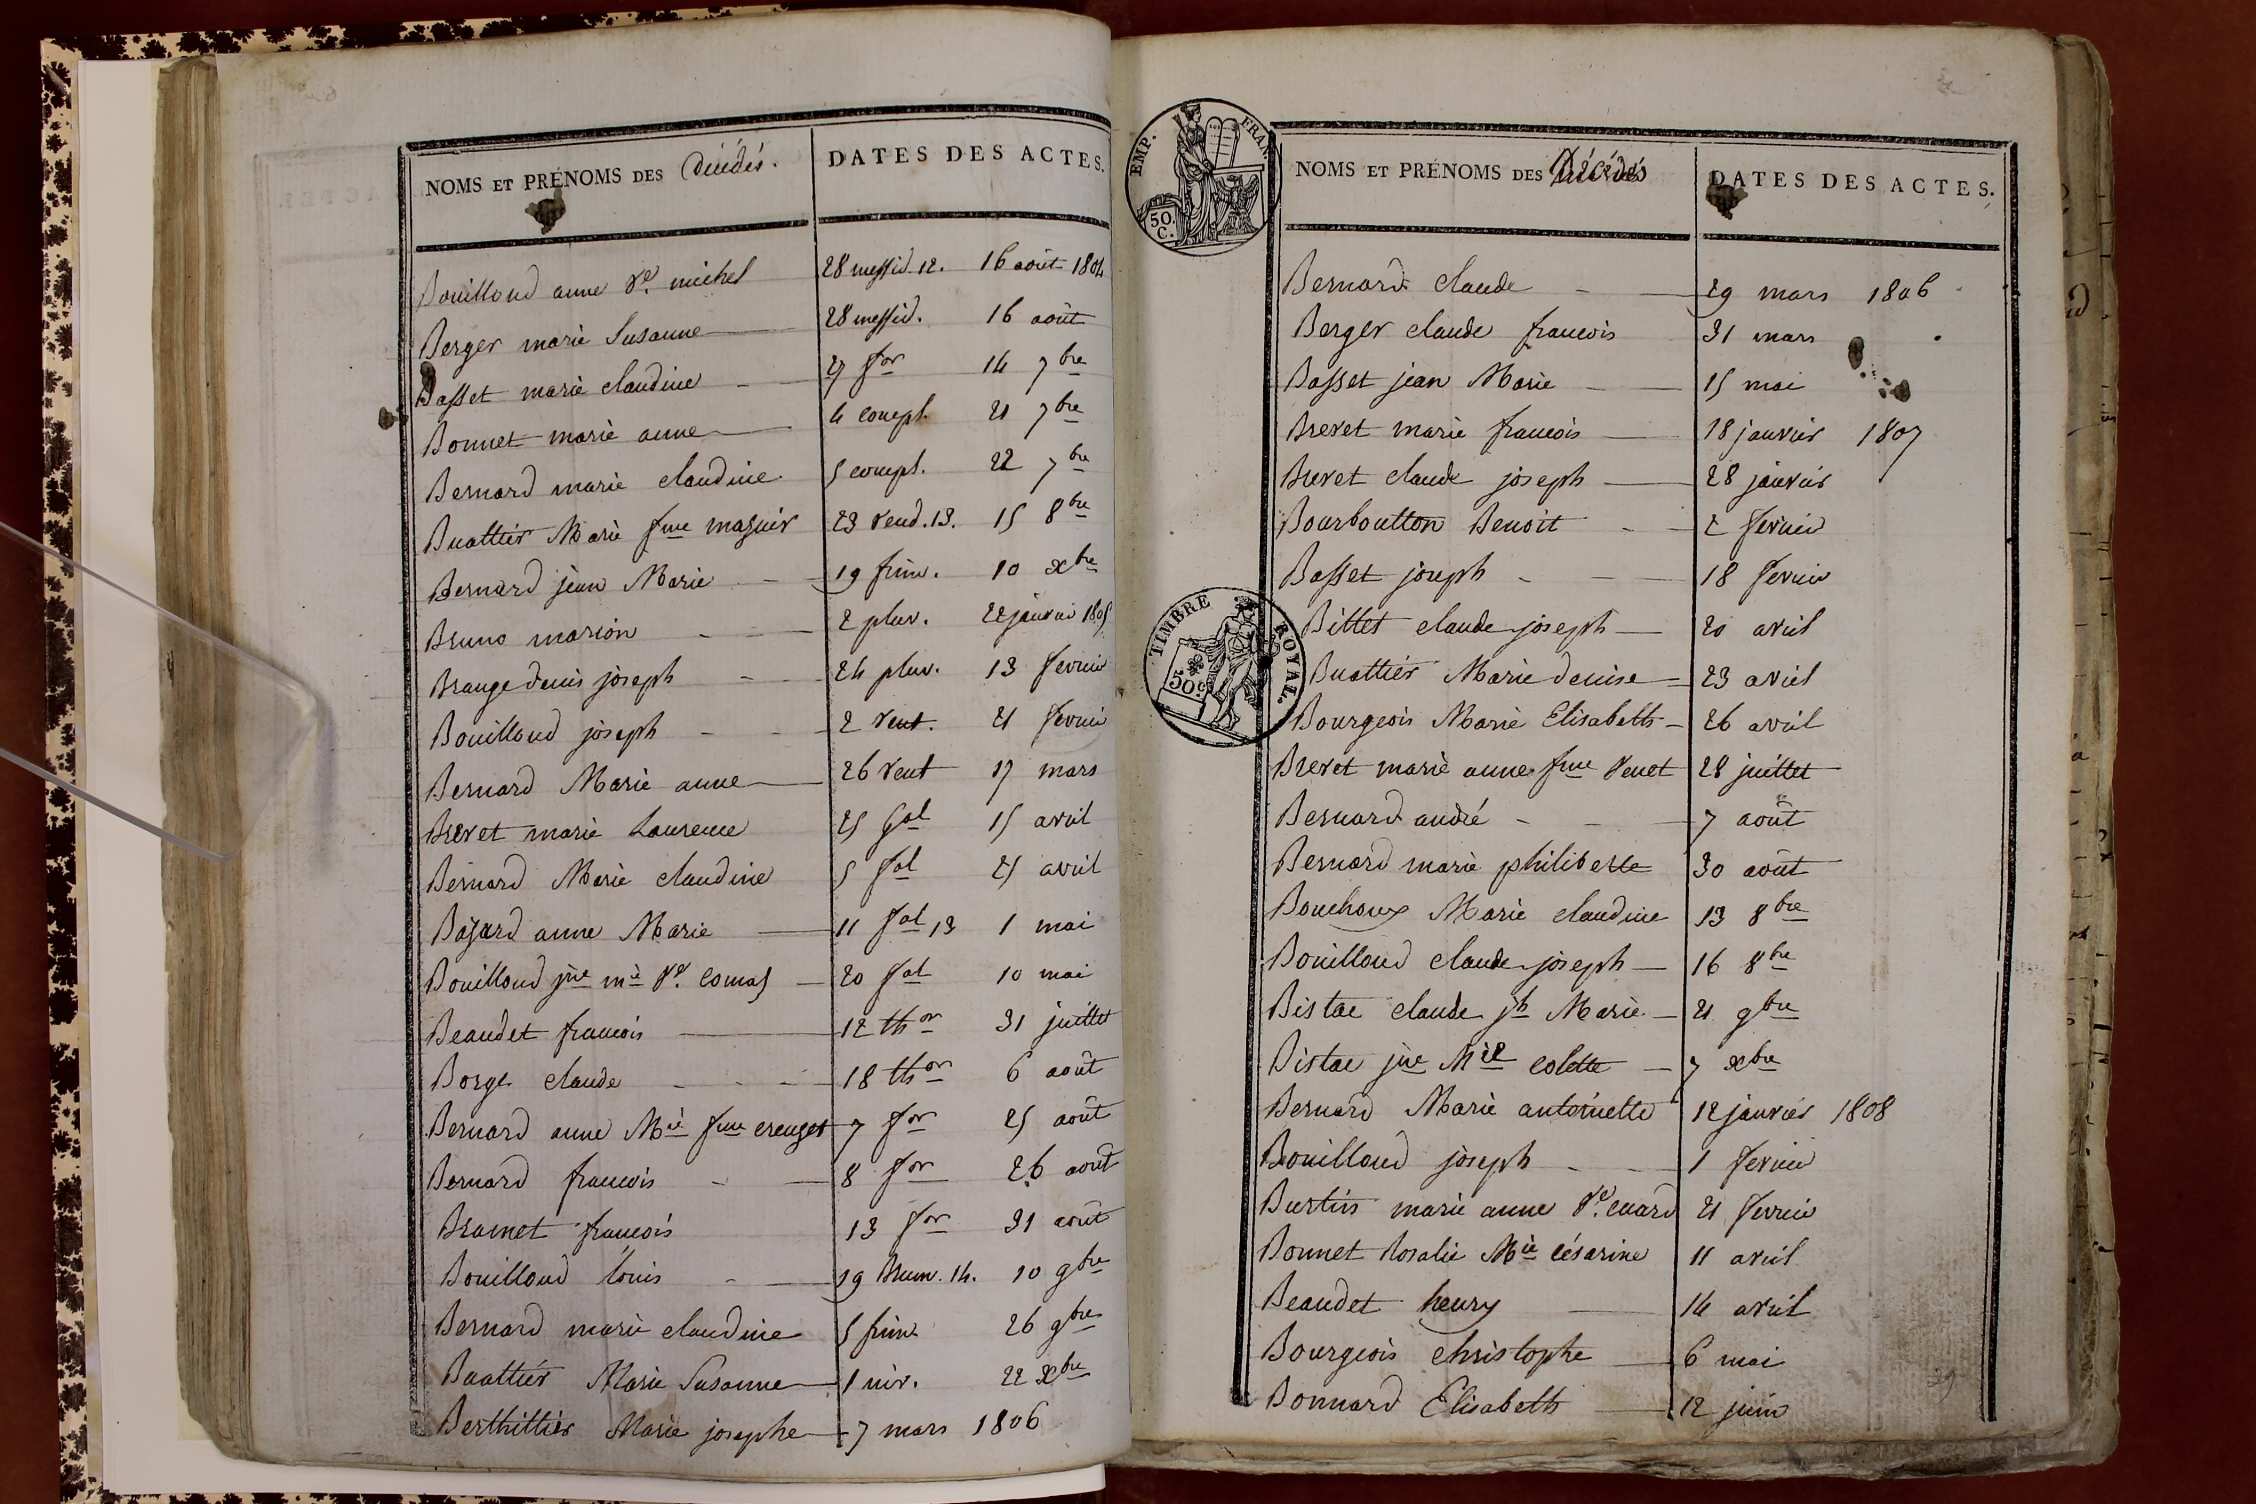 NOMS ET PRÉNOMS DES Décédés. DATES DES ACTES.
Bouilloud anne Ve. michel 28 messid. 12. 16 août 1804
Berger marie Susanne 28 messid. 16 août
Basset marie claudine 27 for 14 7bre
Bonnet marie anne 4 compl. 21 7bre
Bernard marie claudine 5 compl. 22 7bre
Buattier Marie fme 23 vend. 13. 15 8bre
Bernard jean Marie 19 frim. 10 xbre
Bruno marion 2 pluv. 22 janvier 1805
Brange denis joseph 24 pluv. 13 fevrier
Bouilloud joseph 2 vent. 21 fevrier
Bernard Marie anne 26 vent 17 mars
Brevet marie Laurence 25 Gal 15 avril
Bernard Marie claudine 5 fal 25 avril
Bajard anne Marie 11 fal 13 1 mai
Bouilloud jne mie Ve. comas 20 fal 10 mai
Beaudet francois 12 thor 31 juillet
Borge claude 18 thor 6 août
Bernard anne Mie fme creuzet 7 for 25 août
Bernard francois 8 for 26 août
Bramet francois 13 for 31 août
Bouilloud louis 19 Brum. 14. 10 9bre
Bernard marie claudine 5 frim. 26 9bre
Buattier Marie Susanne 1 niv. 22 xbre
Berthillier Marie josephe 7 mars 1806
EMP. FRAN
50. C.
NOMS ET PRÉNOMS DES Décédés DATES DES ACTES.
Bernard claude 29 mars 1806
Berger claude francois 31 mars
Basset jean Marie 15 mai
Brevet marie francois 18 janvier 1807
Brevet claude joseph 28 janvier
Bourboutton Benoit 2 fevrier
Basset joseph 18 fevrier
TIMBRE ROYAL.
50.c
Billet claude joseph 20 avril
Buattier Marie denise 23 avril
Bourgeois Marie Elisabeth 26 avril
Brevet marie anne fme Venet 28 juillet
Bernard andré 7 août
Bernard marie philiberte 30 août
Bouchoux Marie claudine 13 8bre
Bouilloud claude joseph 16 8bre
Bistac claude jh Marie 21 9bre
Bistac jne Mie colette 7 xbre
Bernard Marie antoinette 12 janvier 1808
Bouilloud joseph 1 fevrier
Burtin marie anne Ve. cuard 21 fevrier
Bonnet Rosalie Mie césarine 11 avril
Beaudet henry 14 avril
Bourgeois christophe 6 mai
Bonnard Elisabeth 12 juin
29